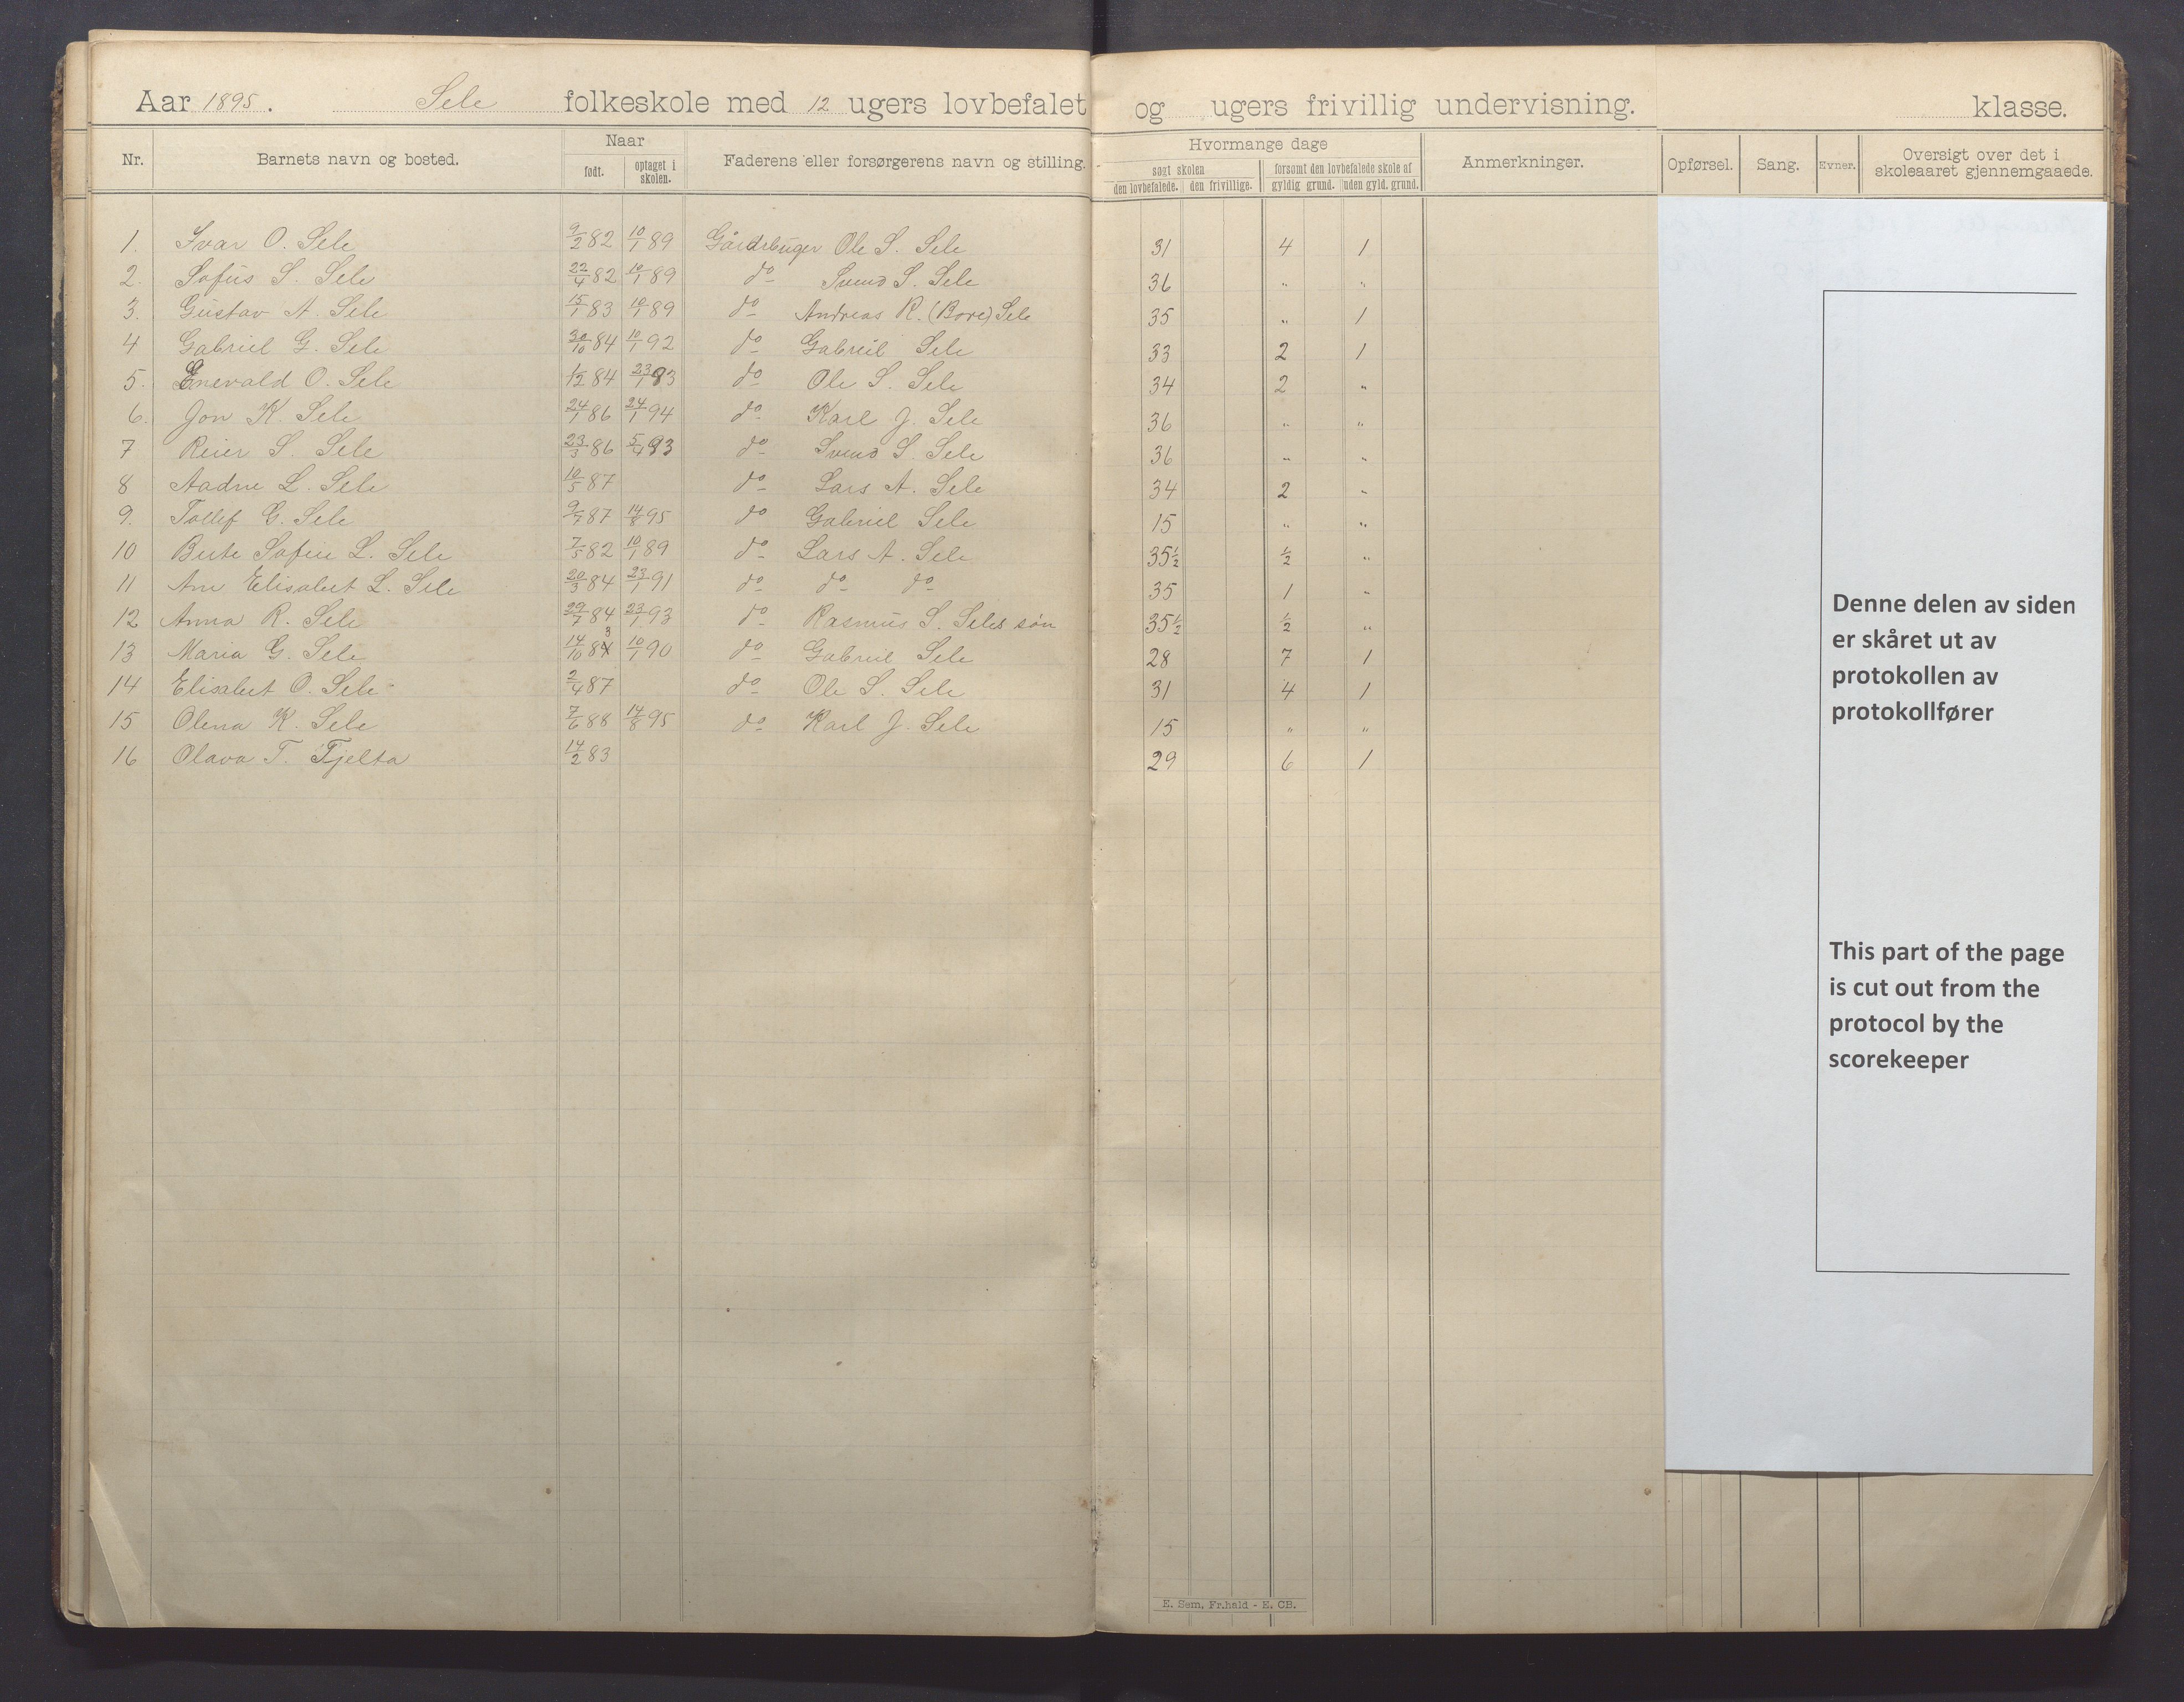 Aar 1895. Sele folkeskole med 12 ugers lovbefalet og ugers frivillig undervisning. klasse.
Nr. Barnets navn og bosted. Naar født. optaget i skolen. Faderens eller forsørgerens navn og stilling. Hvormange dage søgt skolen den lovbefalede. den frivillige. forsømt den lovbefalede skole af gyldig grund. uden gyld. grund. Anmerkninger. Opførsel. Sang. Evner. Oversigt over det i skoleaaret gjennemgaaede.
1. Ivar O. Sele 9/2 82 10/1 89 Gårdbruger Ole S. Sele 31 4 1
2. Sofus S. Sele 22/4 82 10/1 89 do Svend S. Sele 36 " "
3. Gustav A. Sele 15/1 83 10/1 89 do Andreas R. (Bore) Sele 35 " 1
4 Gabriel G. Sele 30/10 84 10/1 92 do Gabriel Sele 33 2 1
5. Enevald O. Sele 1/12 84 23/1 93 do Ole S. Sele 34 2 "
6. Jon K. Sele 24/1 86 24/1 94 do Karl J. Sele 36 " "
7 Reier S. Sele 23/3 86 5/4 93 do Svend S. Sele 36 " "
8 Aadne L. Sele 10/5 87 do Lars A. Sele 34 2 "
9. Tollef G. Sele 9/7 87 14/8 95 do Gabriel Sele 15 " "
10 Berte Sofie L. Sele 7/5 82 10/1 89 do Lars A. Sele 35½ ½ "
11 Ane Elisabet L. Sele 20/3 84 23/1 91 do do do 35 1 "
12 Anna R. Sele 29/7 84 23/1 93 do Rasmus S. Seles søn 35½ ½ "
13 Maria G. Sele 14/10 83 10/1 90 do Gabriel Sele 28 7 1
14 Elisabet O. Sele 2/4 87 do Ole S. Sele 31 4 1
15 Olena K. Sele 7/6 88 14/8 95 do Karl J. Sele 15 " "
16 Olava T. Fjelta 14/2 83 29 6 1
Denne delen av siden
er skåret ut av
protokollen av
protokollfører
This part of the page
is cut out from the
protocol by the
scorekeeper
E. Sem, Fr.hald - E. CB.